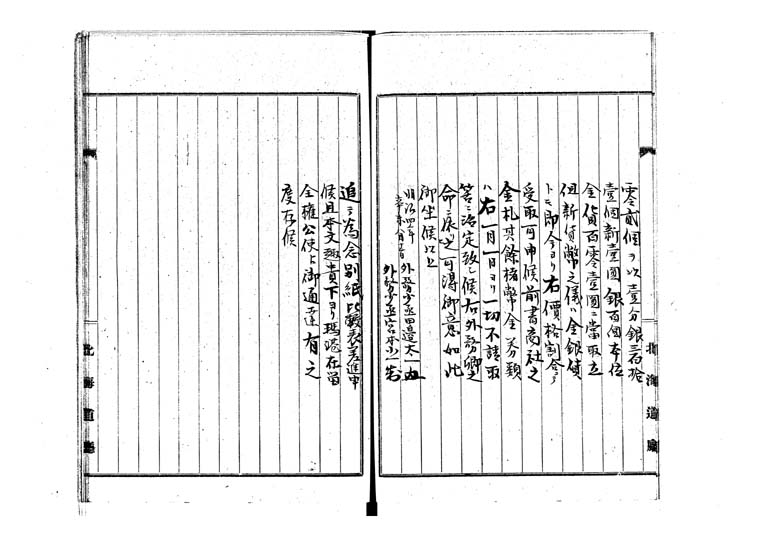 零貳個ヲ以壹分銀三百拾
壹個新壹圓銀百個本位
金貨百零壹圓ニ當取立
但新貨幣之儀ハ金銀貨
トモ即今ヨリ右價格割合ヲ
受取可申候前書商社之
金札其餘楮幣金券類
ハ右一月一日ヨリ一切不請取
筈ニ治定致シ候右外務卿之
命ニ依リ可得御意如此
御坐候以上
明治四年
辛未
外務少丞田邊太一
外務少丞宮本小一
追テ為念別紙比較表差進申
候且本文趣貴下ヨリ瑪港在留
全權公使ヘ御通達有之
度存候
北海道廳
北海道廳